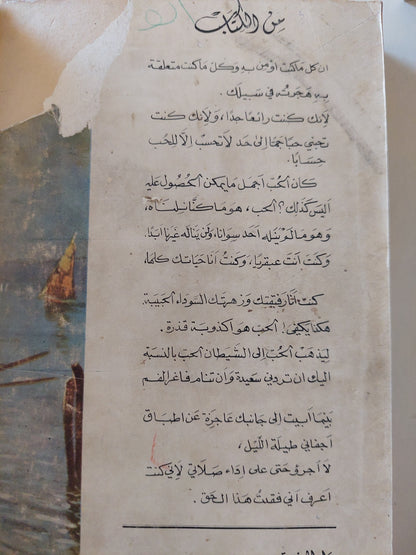 من الكتاب
ان كل ما كنت اؤمن به وكل ما كنت متعلقة
به هجرته في سبيلك.
لانك كنت رائعا جدا، ولانك كنت
تحبني حبا جما إلى حد لا تحسب إلا للحب
حسابا.
كان الحب اجمل ما يمكن الحصول عليه
اليس كذلك؟ الحب، هو ما كنا نلناه،
وهو ما لم ينله احد سوانا، ولن يناله غيرنا ابدا.
وكنت أنت عبقريا، وكنت أنا حياتك كلها،
كنت أنا رفيقتك وزهرتك السوداء الحبيبة.
هكذا يكفي! الحب هو اكذوبة قذرة.
ليذهب الحب إلى الشيطان الحب بالنسبة
اليك ان تردني سعيدة وأن تنام فاغر الفم
بينما أبيت الى جانبك عاجزة عن اطباق
اجفاني طيلة الليل،
لا أجرؤ حتى على اداء صلاتي لأني كنت
اعرف أني فقدت هذا الحق.